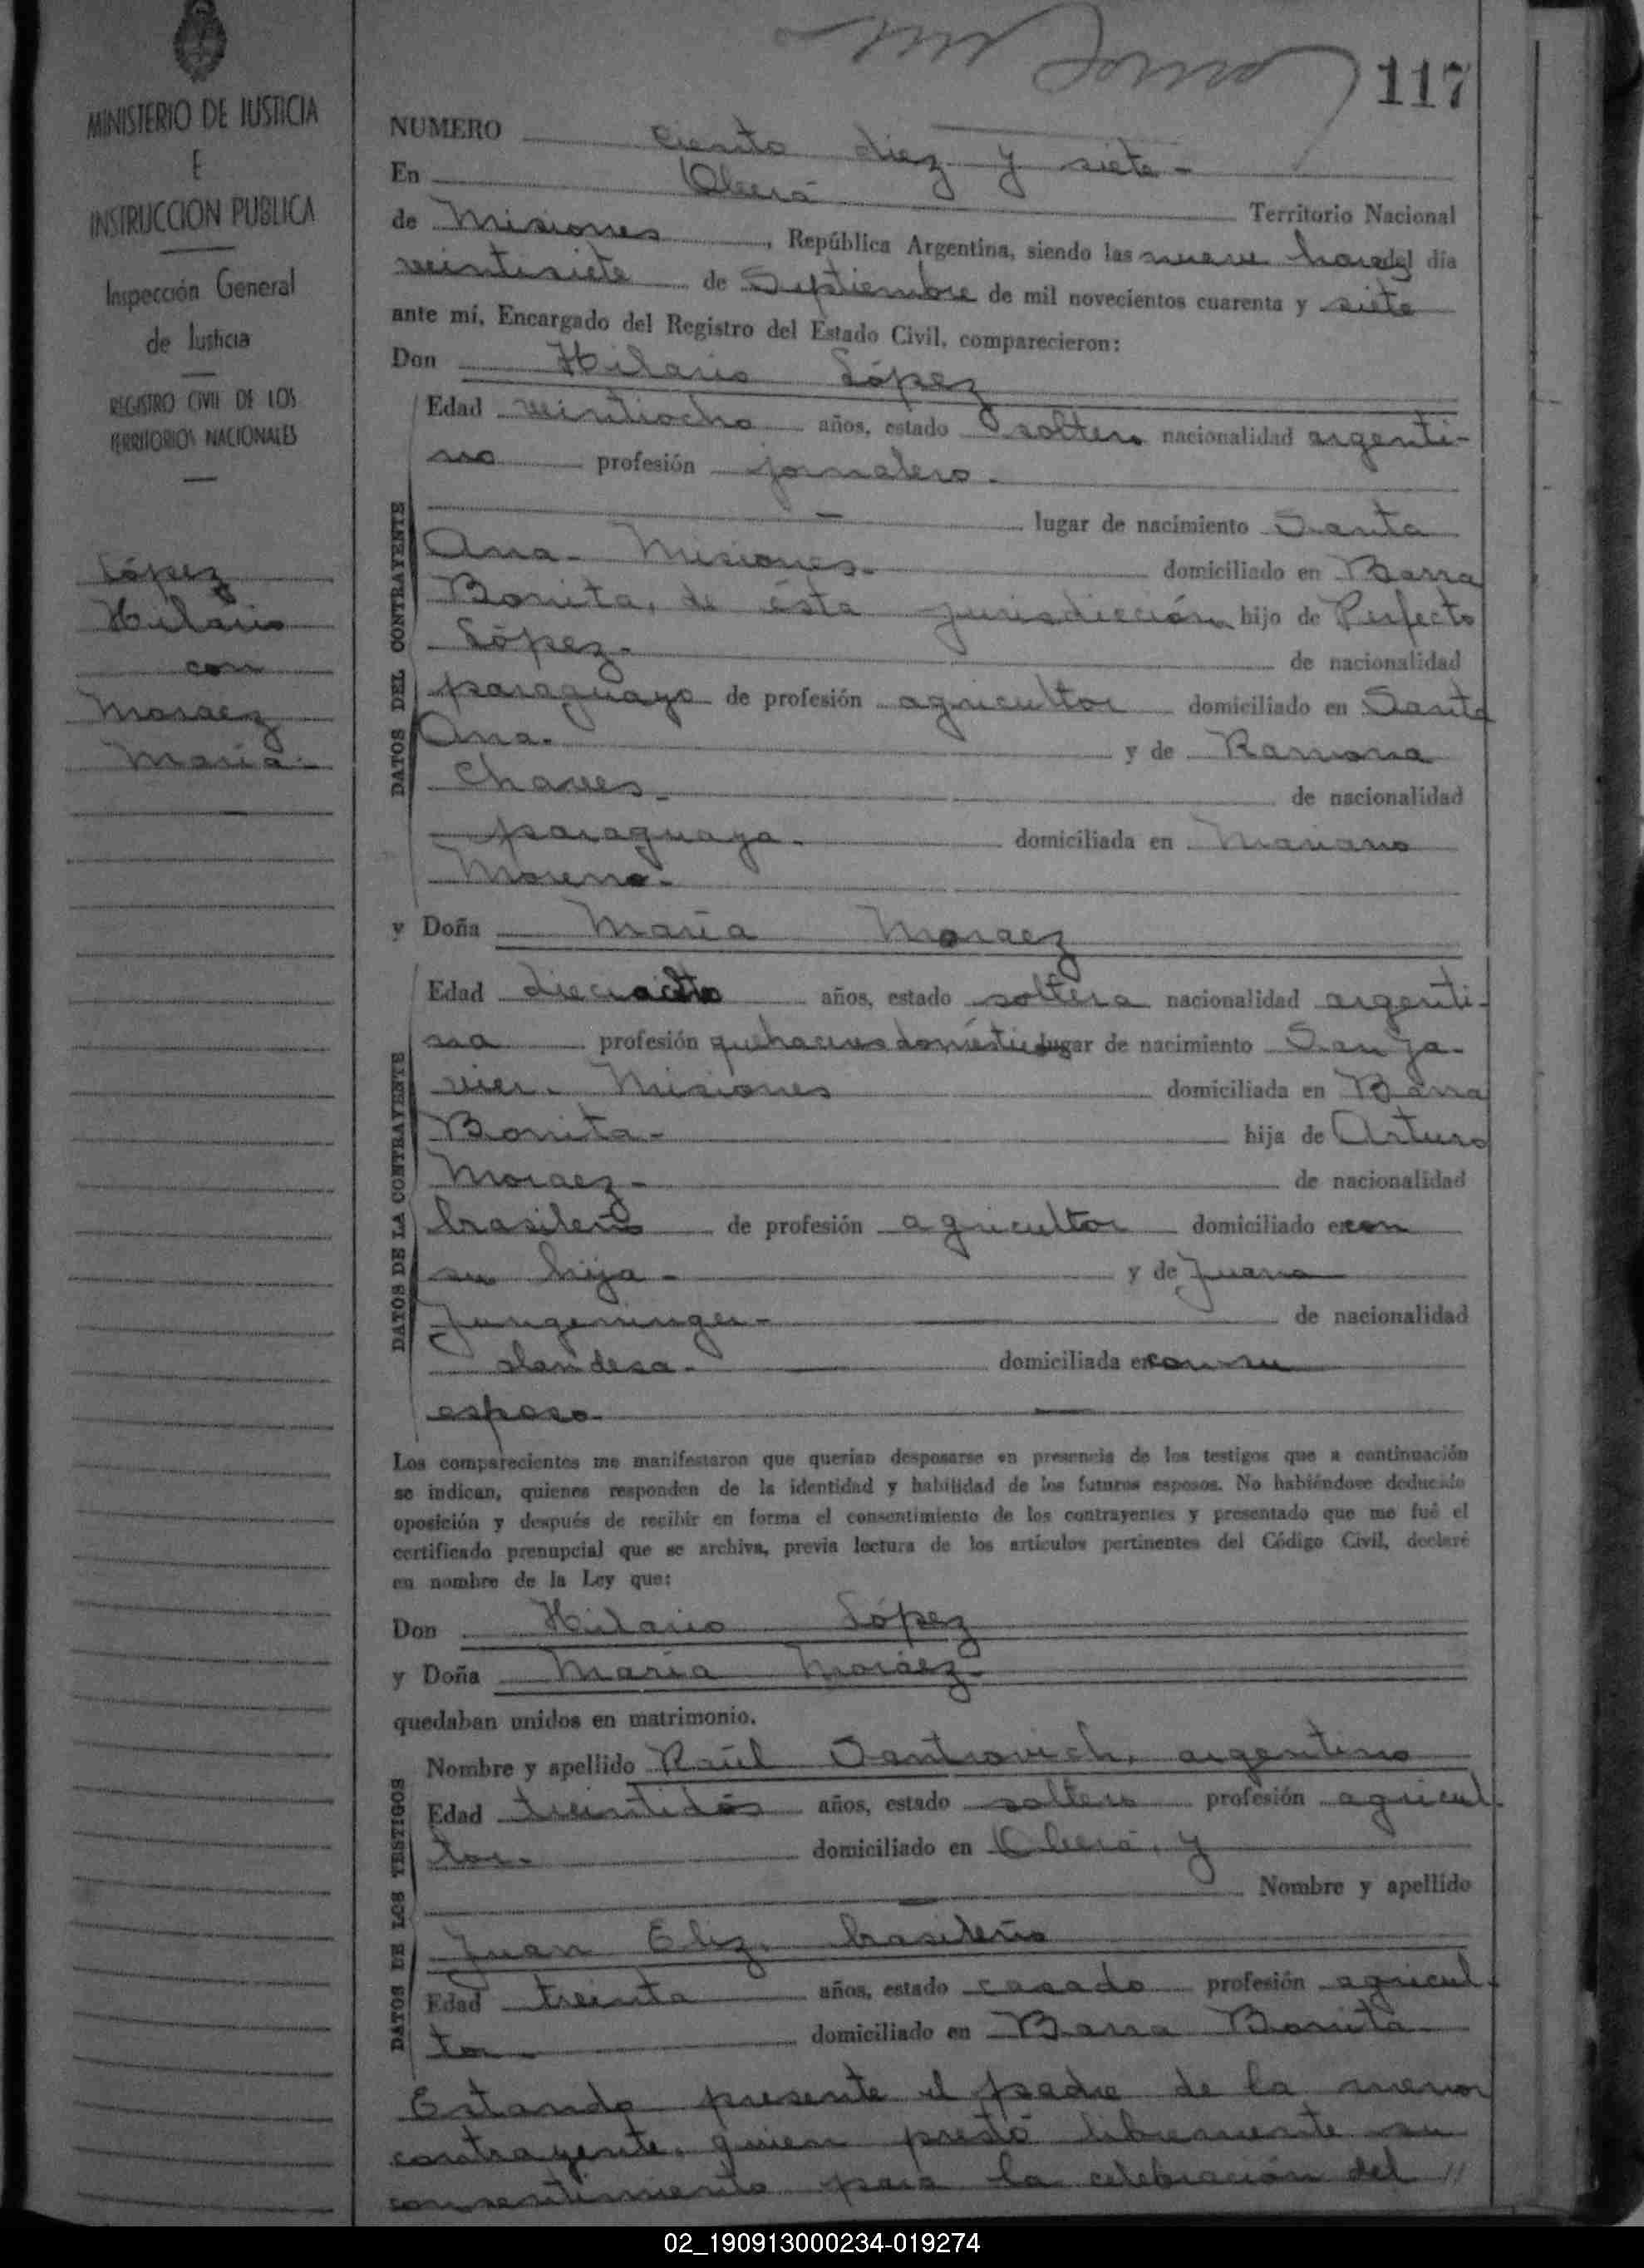 117
MINISTERIO DE JUSTICIA
E
INSTRUCCION PUBLICA
Inspección General
de Justicia
REGISTRO CIVIL DE LOS
TERRITORIOS NACIONALES
López
Hilario
con
Moraez
María.
NUMERO ciento diez y siete -
En Oberá Territorio Nacional
de Misiones, República Argentina, siendo las nueve horas del día
veintisiete de Septiembre de mil novecientos cuarenta y siete
ante mí, Encargado del Registro del Estado Civil, comparecieron:
Don Hilario López
DATOS DEL CONTRAYENTE
Edad veintiocho años, estado soltero nacionalidad argenti-
no profesión jornalero.
lugar de nacimiento Santa
Ana - Misiones. domiciliado en Barra
Bonita, de ésta jurisdicción hijo de Perfecto
López. de nacionalidad
paraguayo de profesión agricultor domiciliado en Santa
Ana. y de Ramona
Chaves. de nacionalidad
paraguaya. domiciliada en Mariano
Moreno.
y Doña María Moraez
DATOS DE LA CONTRAYENTE
Edad dieciocho años, estado soltera nacionalidad argenti-
na profesión quehaceres domésticos lugar de nacimiento San Ja-
vier. Misiones domiciliada en Barra
Bonita - hija de Arturo
Moraez - de nacionalidad
brasileño de profesión agricultor domiciliado en con
su hija - y de Juana
de nacionalidad
domiciliada en con su
esposo.
Los comparecientes me manifestaron que querían desposarse en presencia de los testigos que a continuación
se indican, quienes responden de la identidad y habilidad de los futuros esposos. No habiéndose deducido
oposición y después de recibir en forma el consentimiento de los contrayentes y presentado que me fué el
certificado prenupcial que se archiva, previa lectura de los artículos pertinentes del Código Civil, declaré
en nombre de la Ley que:
Don Hilario López
y Doña María Moráez.
quedaban unidos en matrimonio.
DATOS DE LOS TESTIGOS
Nombre y apellido Raúl argentino
Edad treintidós años, estado soltero profesión agricul-
tor. domiciliado en Oberá, y
Nombre y apellido
Juan brasileño
Edad treinta años, estado casado profesión agricul-
tor domiciliado en Barra Bonita
Estando presente el padre de la menor
contrayente, quien prestó libremente su
consentimiento para la celebración del //
02_190913000234-019274